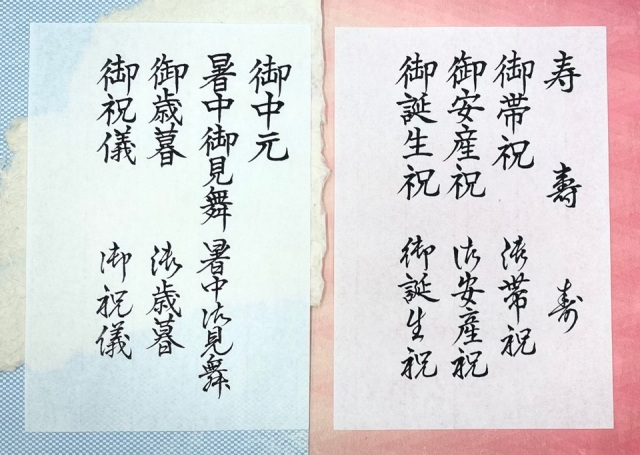 寿 壽 寿
御帯祝 御帯祝
御安産祝 御安産祝
御誕生祝 御誕生祝
御中元
暑中御見舞 暑中御見舞
御歳暮 御歳暮
御祝儀 御祝儀